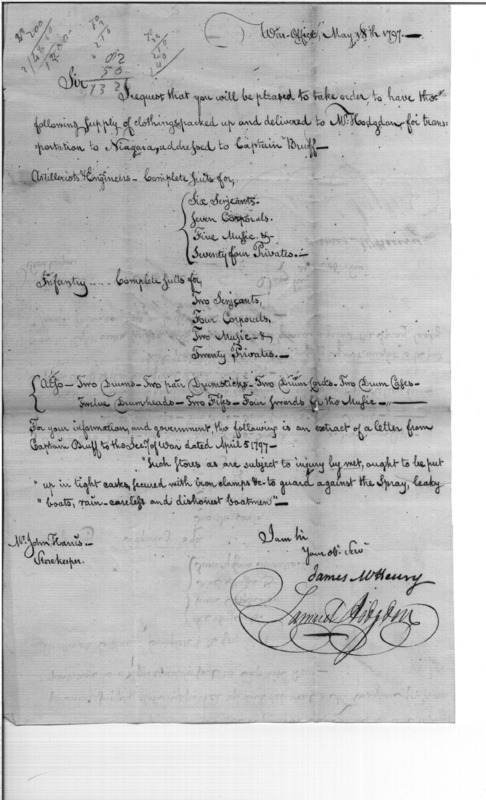 War-Office, May 18th 1797.
Sir
I request that you will be pleased to take order to have the
following supply of clothing packed up and delivered to Mr Hodgdon, for trans-
portation to Niagara, addressed to Captain Bruff
Artillerists & Engineers - Complete suits for,
Six Serjeants.
Seven Corporals.
Five Music. &
Seventy four Privates.
Infantry .... Complete suits for,
Two Serjeants,
Four Corporals,
Two Music - &
Twenty Privates.
Also - Two Drums - Two pair Drumsticks - Two Drum Cords - Two Drum Cases -
Twelve Drumheads - Two Fifes - Four Swords for the Music
For your information, and government, the following is an extract of a letter from
Captain Bruff to the Secy of War dated April 5 1797 -
"Such stores as are subject to injury by wet, ought to be put
" up in tight casks, secured with iron clamps &c to guard against the Spray, leaky
" boats, rain - careless and dishonest boatmen"
I am Sir
Your obt Servt
Mr John Harris -
Storekeeper.
James McHenry
Samuel Hodgdon